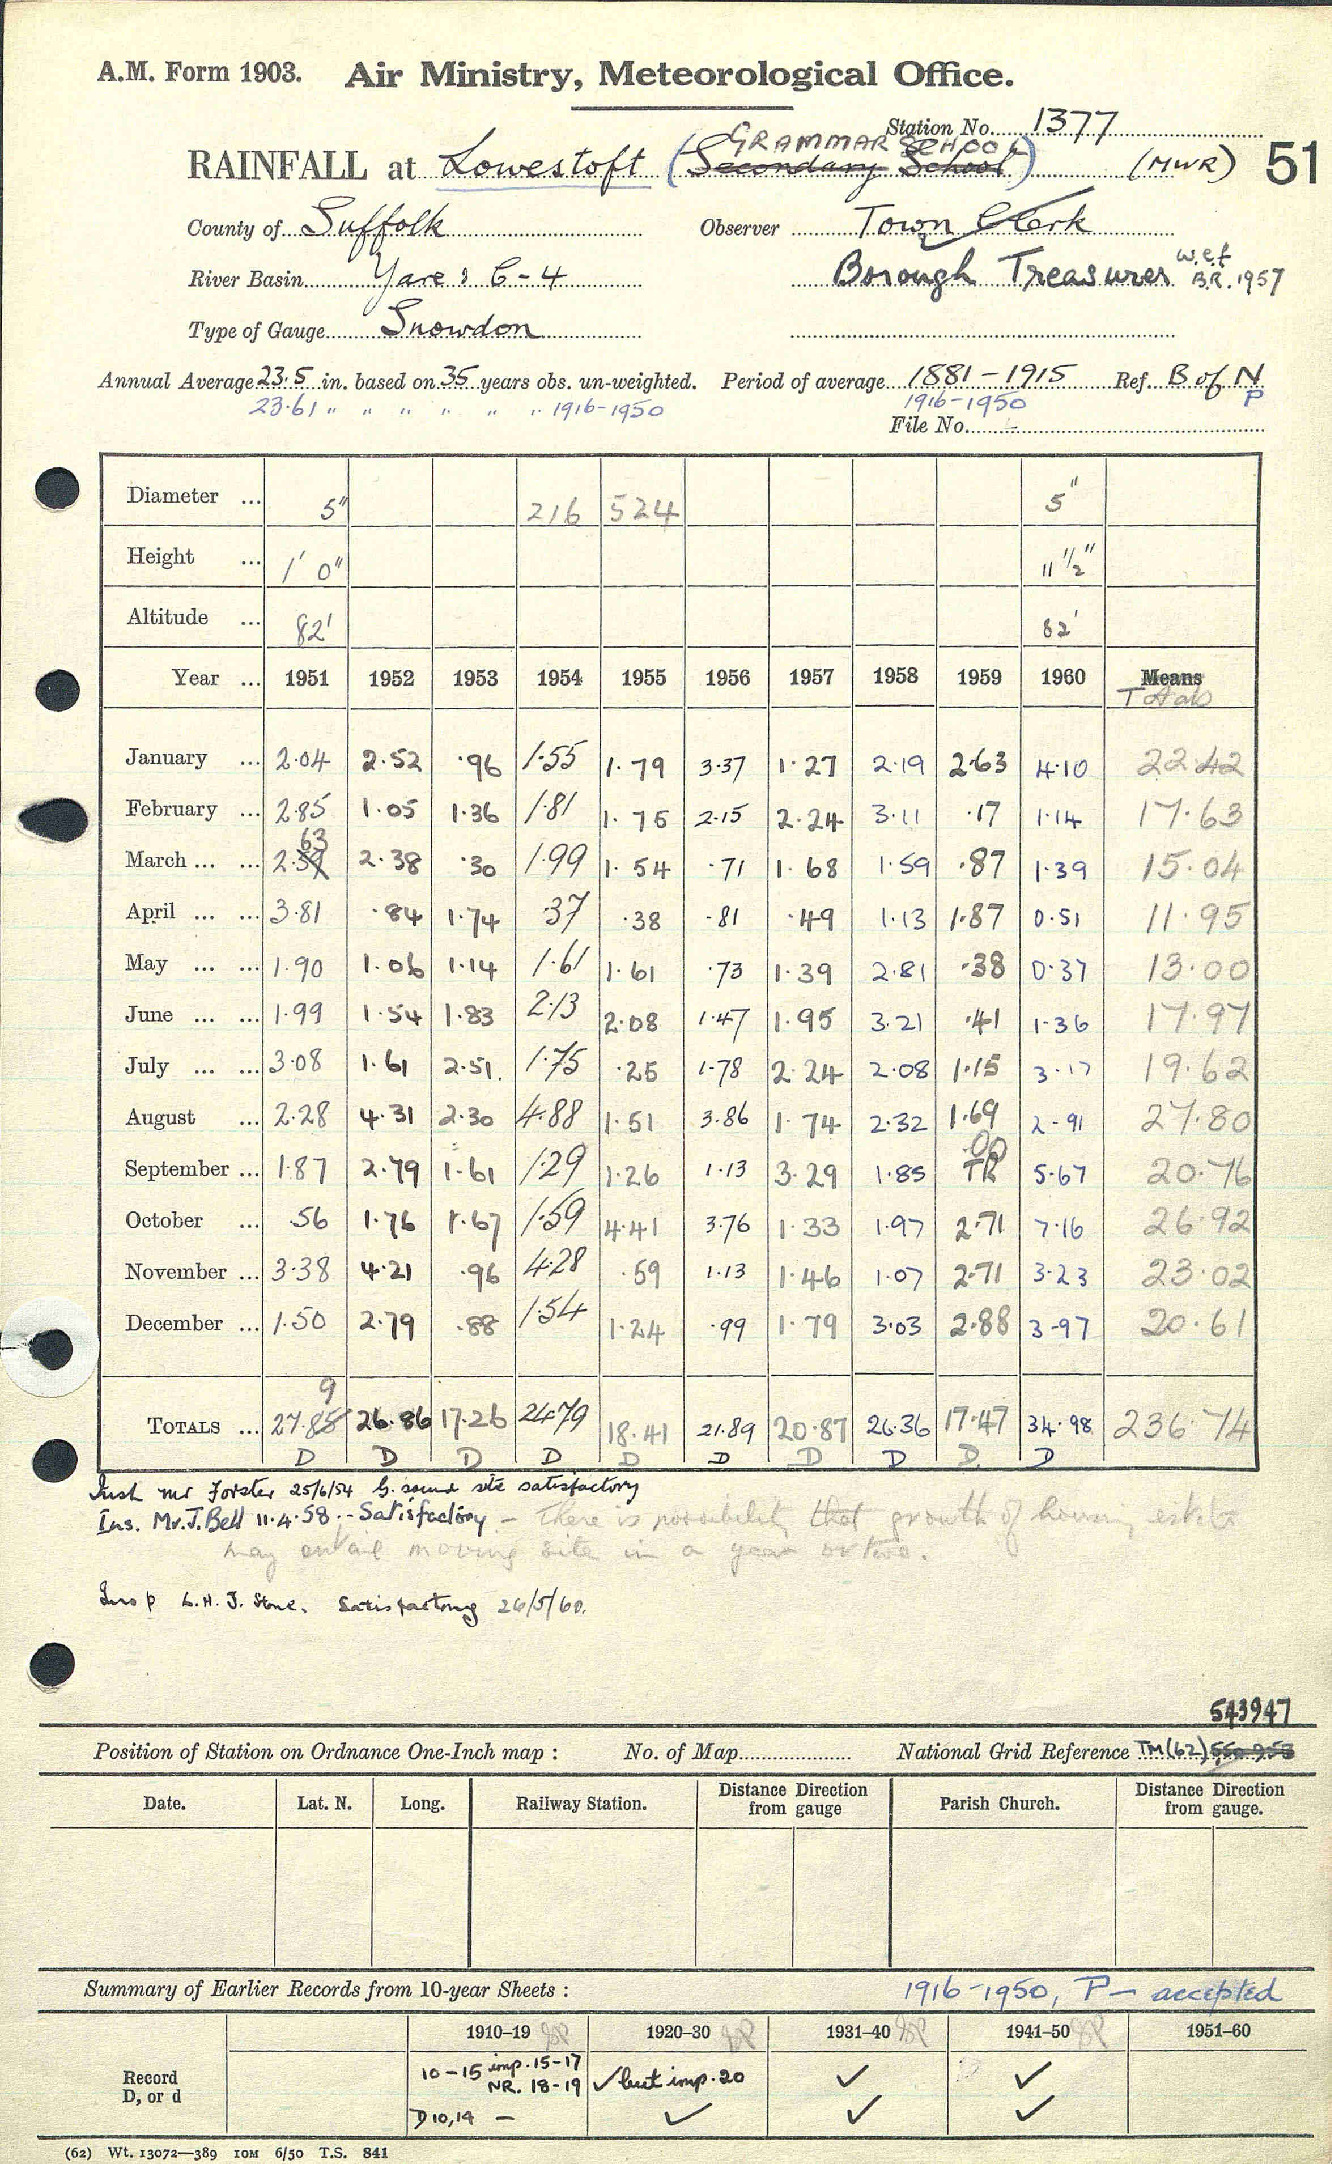 A.M. Form 1903. Air Ministry, Meteorological Office.
Station No. 1377
GRAMMAR SCHOOL
RAINFALL at Lowestoft (Secondary School) (MWR) 51
County of Suffolk Observer Town Clerk
River Basin Yare & C-4 Borough Treasurer w.e.f B.R. 1957
Type of Gauge Snowdon
Annual Average 23.5 in. based on 35 years obs. un-weighted. Period of average 1881-1915 Ref. B of N
23.61 " " " " " " 1916-1950 1916-1950 P
File No.
Diameter ... 5" 216 524 5"
Height ... 1' 0" 11 1/2"
Altitude ... 82' 82'
Year ... 1951 1952 1953 1954 1955 1956 1957 1958 1959 1960 Means
Totals
January ... 2.04 2.52 .96 1.55 1.79 3.37 1.27 2.19 2.63 4.10 22.42
February ... 2.85 1.05 1.36 1.81 1.75 2.15 2.24 3.11 .17 1.14 17.63
63
March ... ... 2.59 2.38 .30 1.99 1.54 .71 1.68 1.59 .87 1.39 15.04
April ... ... 3.81 .84 1.74 .37 .38 .81 .49 1.13 1.87 0.51 11.95
May ... ... 1.90 1.06 1.14 1.61 1.61 .73 1.39 2.81 .38 0.37 13.00
June ... ... 1.99 1.54 1.83 2.13 2.08 1.47 1.95 3.21 .41 1.36 17.97
July ... ... 3.08 1.61 2.51 1.75 .25 1.78 2.24 2.08 1.15 3.17 19.62
August ... 2.28 4.31 2.30 4.88 1.51 3.86 1.74 2.32 1.69 2.91 27.80
.00
September ... 1.87 2.79 1.61 1.29 1.26 1.13 3.29 1.85 TR 5.67 20.76
October ... .56 1.76 1.67 1.59 4.41 3.76 1.33 1.97 2.71 7.16 26.92
November ... 3.38 4.21 .96 4.28 .59 1.13 1.46 1.07 2.71 3.23 23.02
December ... 1.50 2.79 .88 1.54 1.24 .99 1.79 3.03 2.88 3.97 20.61
9
TOTALS ... 27.85 26.86 17.26 24.79 18.41 21.89 20.87 26.36 17.47 34.98 236.74
D D D D D D D D D D
Insp Mr Forster 25/6/54 G. sound site satisfactory
Ins. Mr. J. Bell 11.4.58. - Satisfactory - There is possibility that growth of housing estate
may entail moving site in a year or two.
Insp L.H.J. Stone. Satisfactory 26/5/60.
543947
Position of Station on Ordnance One-Inch map : No. of Map National Grid Reference TM(62) 550958
Date. Lat. N. Long. Railway Station. Distance from gauge Direction Parish Church. Distance from gauge. Direction
Summary of Earlier Records from 10-year Sheets : 1916-1950, P - accepted
1910-19 1920-30 1931-40 1941-50 1951-60
Record D, or d
10-15 imp. 15-17 ✓ but imp. 20 ✓ ✓
NR. 18-19
D 10,14 - ✓ ✓ ✓
(62) Wt. 13072—389 10M 6/50 T.S. 841